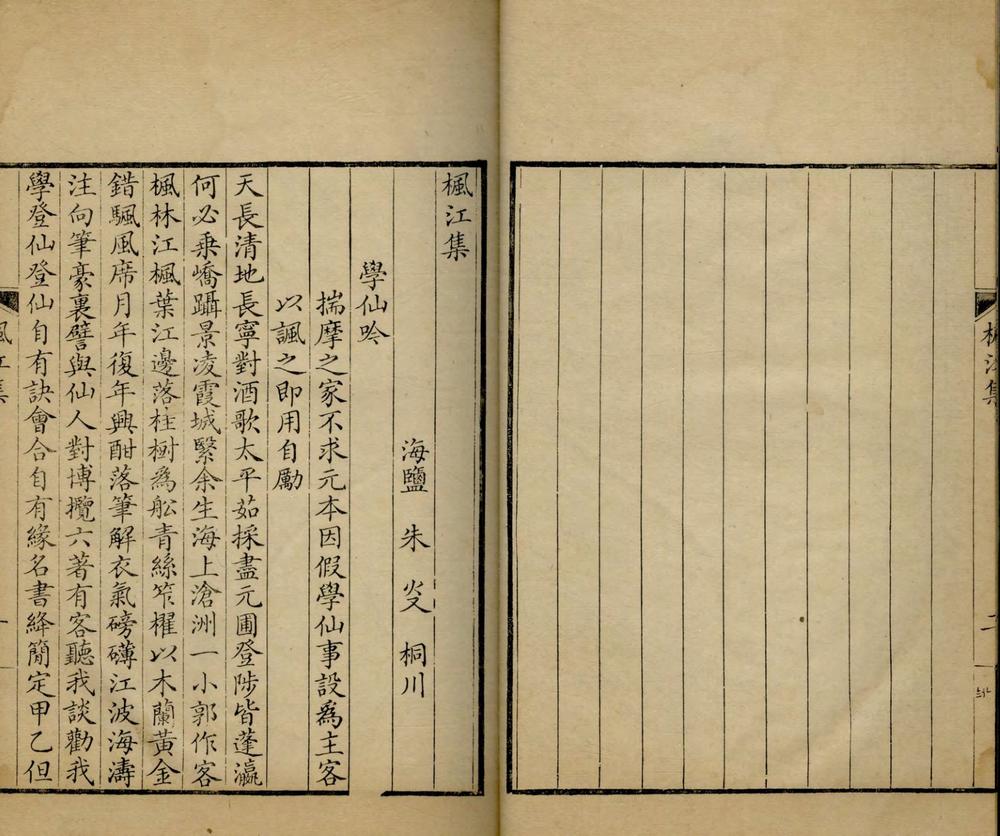 楓江集
二
楓江集
海鹽　朱炎　桐川
學仙吟
揣摩之家不求元本因假學仙事設為主客
以諷之即用自勵
天長清地長寧對酒歌太平茹採盡元圃登陟皆蓬瀛
何必乘嶠躡景凌霞城繄余生海上滄洲一小郭作客
楓林江楓葉江邊落柱樹為舩青絲笮櫂以木蘭黃金
錯颿風席月年復年興酣落筆解衣氣磅礴江波海濤
注向筆豪裏譬與仙人對博攬六著有客聽我談勸我
學登仙登仙自有訣會合自有緣名書絳簡定甲乙但
楓江集
一